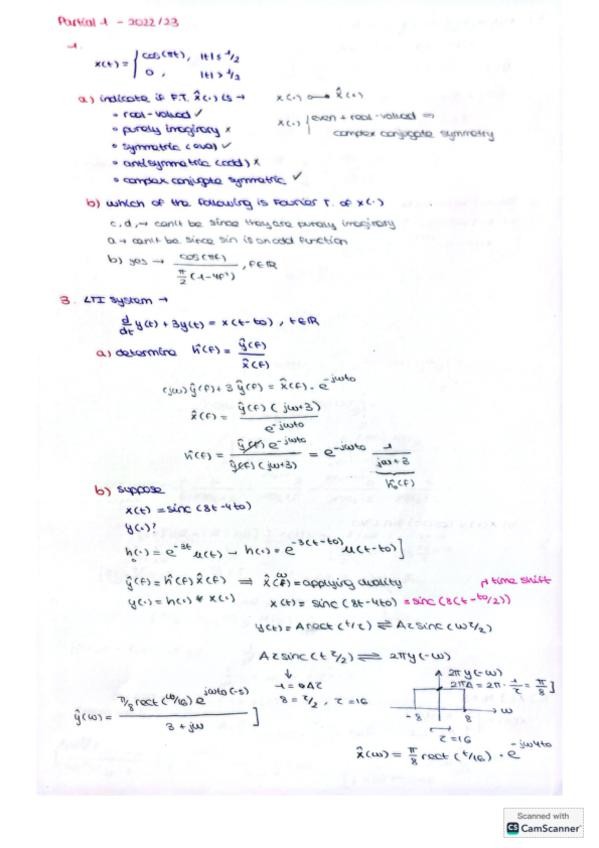 Partial 1 - 2022/23
1.
x(t) = { cos(πt), |t| ≤ 1/2
0, |t| > 1/2
a) indicate if F.T. x̂(.) is → x(.) ○—● x̂(.)
• real-valued ✓ x(.) { even + real-valued ⇒
• purely imaginary x complex conjugate symmetry
• symmetric (even) ✓
• antisymmetric (odd) x
• complex conjugate symmetric ✓
b) which of the following is Fourier T. of x(.)
c, d, → can't be since they are purely imaginary
a → can't be since sin is an odd function
b) yes → cos(πf) / π/2 (1-4f²), f∈ℝ
3. LTI system →
d/dt y(t) + 3y(t) = x(t-to), t∈ℝ
a) determine ĥ(f) = ŷ(f) / x̂(f)
(jω) ŷ(f) + 3 ŷ(f) = x̂(f) . e^-jωto
x̂(f) = ŷ(f) (jω+3) / e^-jωto
ĥ(f) = ŷ(f) e^-jωto / ŷ(f) (jω+3) = e^-jωto 1 / jω+3
ĥo(f)
b) suppose
x(t) = sinc (8t-4to)
y(.)?
ho(.) = e^-3t u(t) → h(.) = e^-3(t-to) u(t-to)]
ŷ(f) = ĥ(f) x̂(f) ⇒ x̂(f) = applying duality
ω
↱ time shift
y(.) = h(.) * x(.) x(t) = sinc (8t-4to) = sinc (8(t-to/2))
y(t) = A rect (t/τ) ⇌ Aτ sinc (ωτ/2)
Aτ sinc (t τ/2) ⇌ 2π y(-ω)
↓
1 = Aτ
8 = τ/2, τ = 16
2π y(-ω)
2πA = 2π . 1/τ = π/8 ]
-8 8 ω
τ = 16
ŷ(ω) = π/8 rect (ω/16) e^jωto(-5) / 3 + jω ]
x̂(ω) = π/8 rect (t/16) . e^-jω4to
Scanned with
CS CamScanner